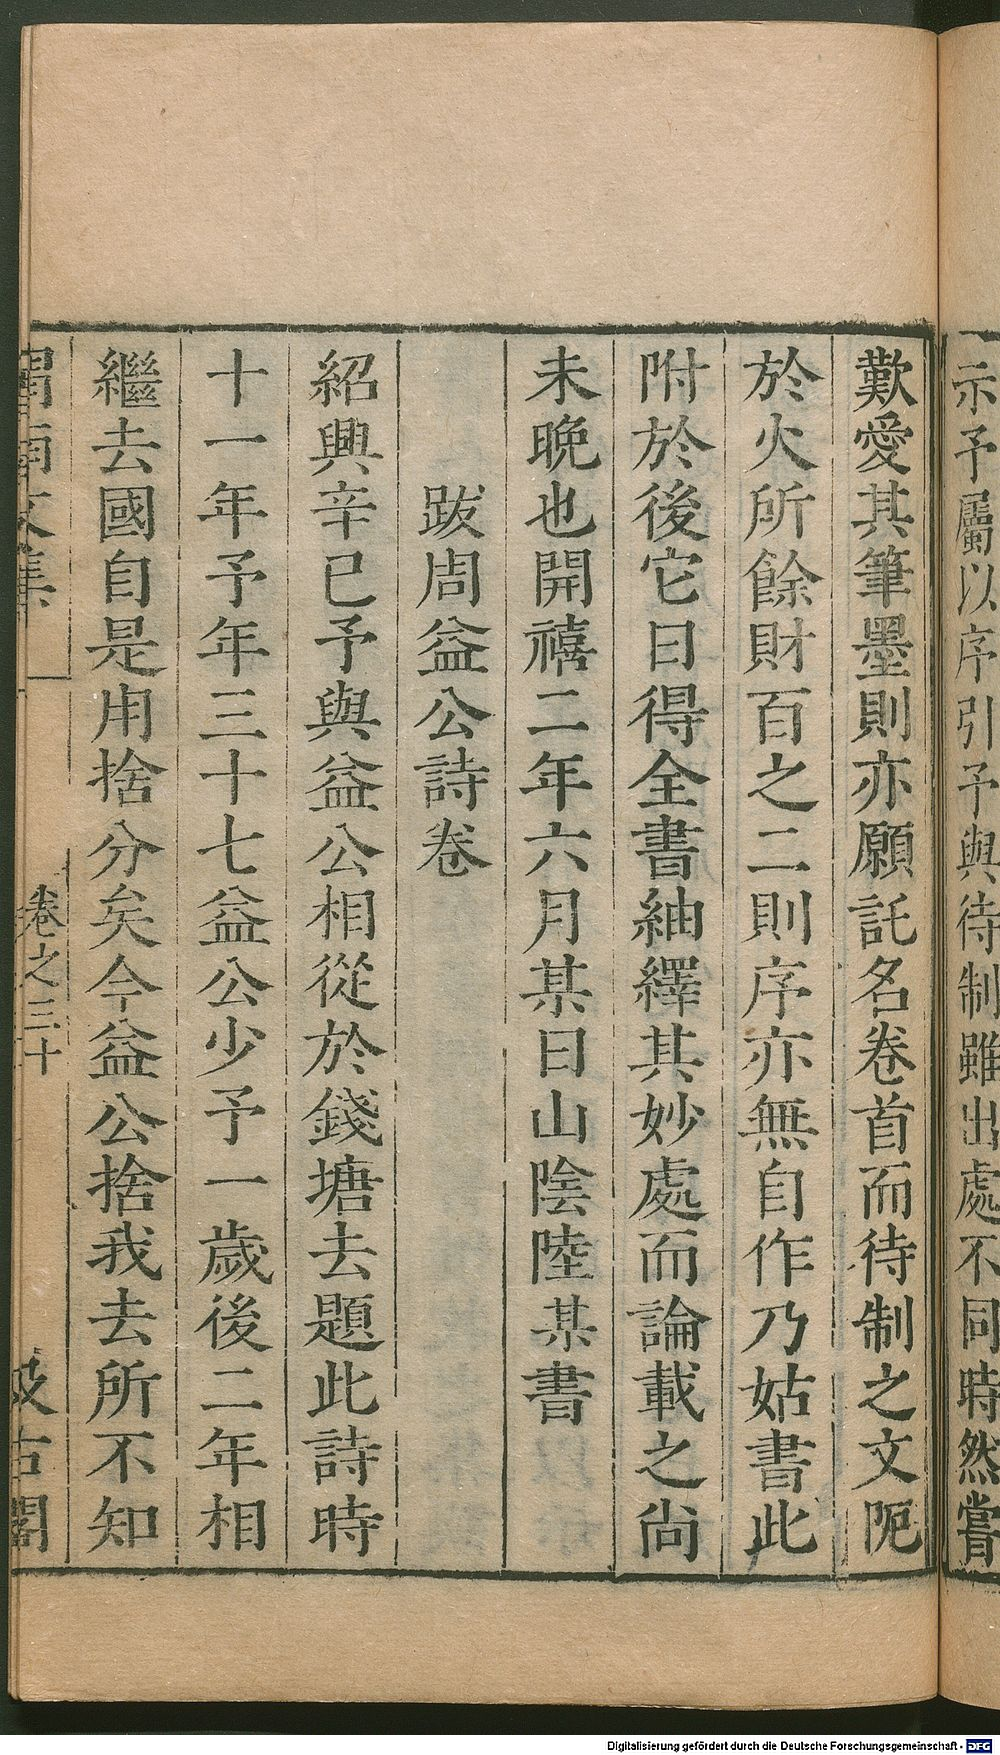 示予屬以序引予與待制雖出處不同時然嘗
歎愛其筆墨則亦願託名卷首而待制之文阨
於火所餘財百之二則序亦無自作乃姑書此
附於後它日得全書紬繹其妙處而論載之尚
未晚也開禧二年六月某日山陰陸某書
跋周益公詩卷
紹興辛巳予與益公相從於錢塘去題此詩時
十一年予年三十七益公少予一歲後二年相
繼去國自是用捨分矣今益公捨我去所不知
渭南文集
卷之三十
汲古閣
Digitalisierung gefördert durch die Deutsche Forschungsgemeinschaft - DFG